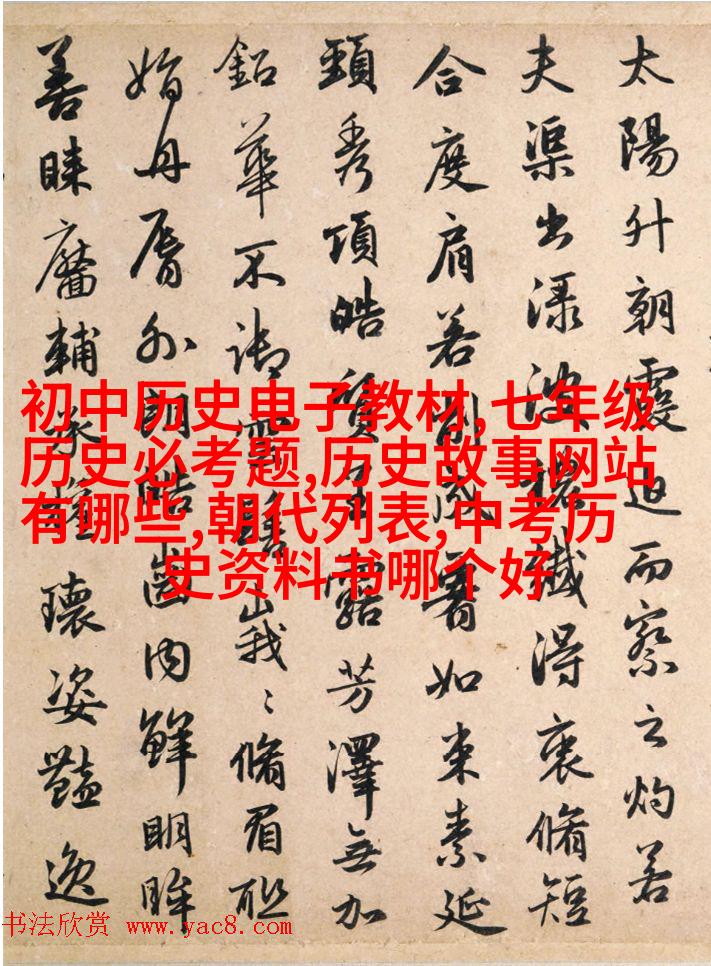 太陽升朝霞迫而察之灼若
夫渠出淥波穠纖得衷脩短
合度肩若削成如束素延
頸秀項皓質呈露芳澤無加
鉛華不御雲髻峩〻脩眉聯
娟丹脣外朗皓齒内鮮明眸
善睞靨輔承權瓌姿豔逸
初中历史电子教材,七年级
历史必考题,历史故事网站
有哪些,朝代列表,中考历
史资料书哪个好
书法欣赏 www.yac8.com